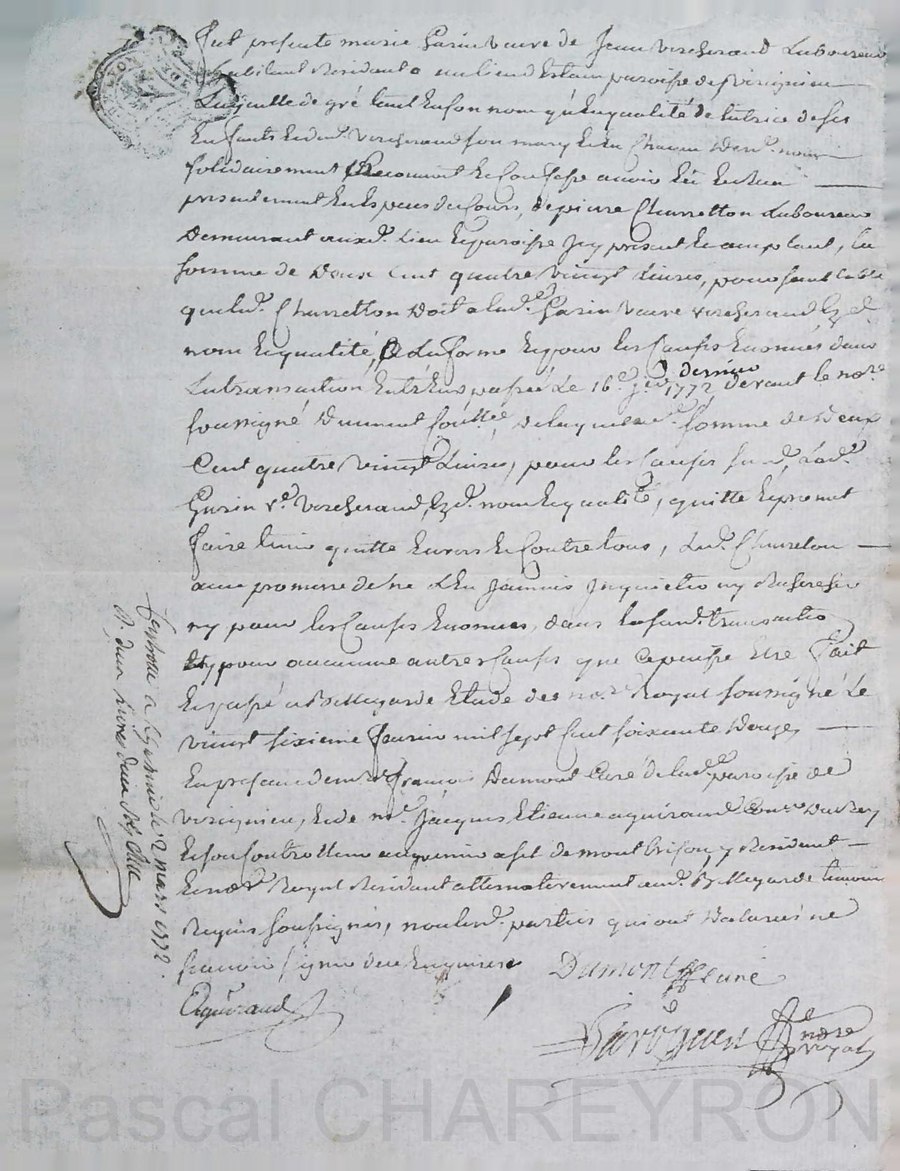 Fut presente marie Garin vauve de Jean Vercherand Laboureur
habitant Residant au lieu d' paroisse de Virignieu
Laquelle de gré tant en son nom qu'En qualité de tutrice de ses
Enfants dud. Vercherand son mary Et en Chacun desd. noms
solidairement Reconnoit Et Confesse avoir Eü Et Reçu
presentement En Especes du Cours, de pierre Charretton Laboureur
Demeurant auxd. Lieu Et paroisse Icy présent Et acceptant, La
somme de Deux Cent quatre vingt Livres, pour semblable
que led. Charretton Doit a lad. Garin vauve vercherand Ezd.
nom Et qualité, Et La forme Et pour les Causes Enoncées dans
La transaction Entr'Eux passée Le 16e Jer dernier 1772 devant le nore
soussigné Dument , De laquelle somme de Deux
Cent quatre vingt Livres, pour les Causes susd. Lad.
Garin ve. Vercherand, Ezd. nom Et qualité, quitte Et promet
faire tenir quitte Envers Et Contre tous, Led. Charreton
avec promesse de ne L'En Jamais Inquietter ny Rechercher
ny pour les Causes Enoncées, dans la susd. transaction
ny pour aucunne autres Causes que Ce puisse Etre Fait
Et passé a Bellegarde Etude du nore Royal soussigné Le
vingt sixieme fevrier mil sept Cent soixante Douze
En présence de mre françois Dumont Curé de lad. paroisse de
virignieu, Et de mr. Jacques Etienne aguiraud Du Roy
Et son Controlleur au grenier a sel de montbrison, y Residant
Et nore Royal Residant alternativement aud. Bellegarde temoin
Requis soussignés, non lesd. parties qui ont Declarées ne
scavoir signer de ce Enquises
Dumont Curé
Aguiraud
nore royal
Controllé a le 2 mars 1772.
Rt deux Livres deux sols
Pascal CHAREYRON